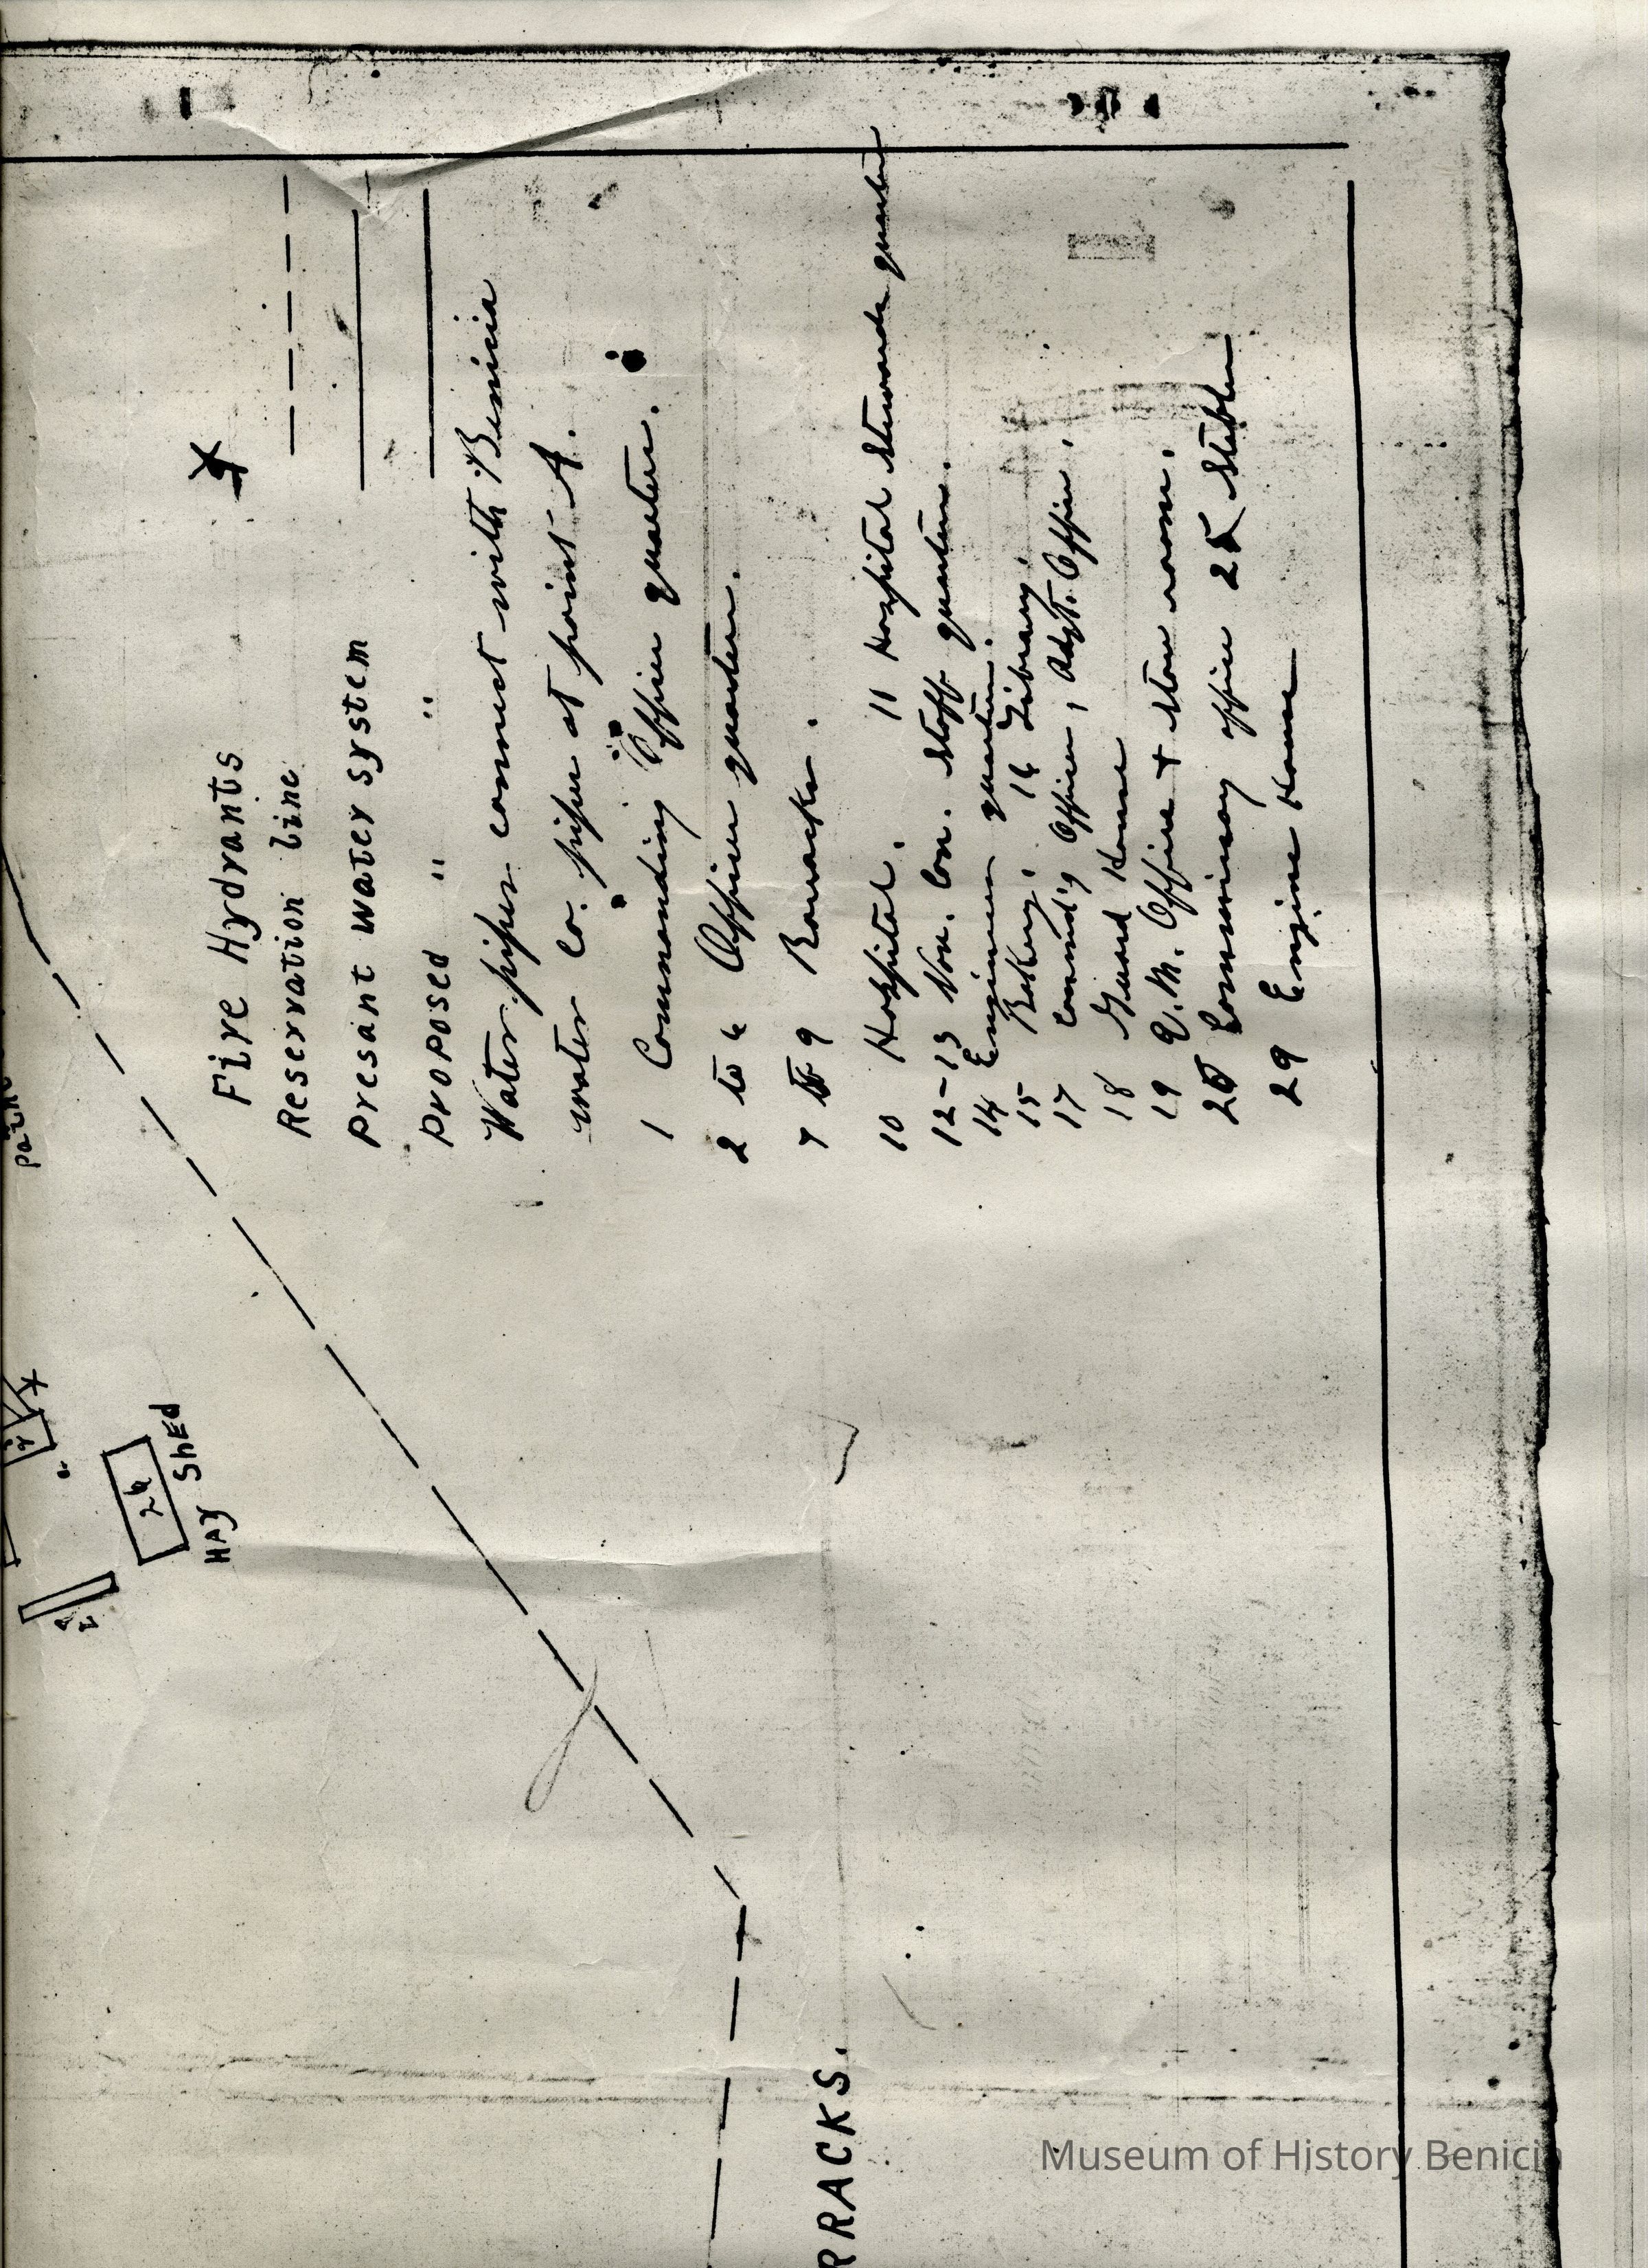 Fire Hydrants
Reservation line
Presant water system
Proposed " "
Water pipes connect with Benicia
water Co. pipes at point A.
1 Commanding Officer quarters.
2 to 6 Officers quarters.
7 to 9 Barracks.
10 Hospital. 11 Hospital Stewards quarters
12-13 Non. Con. Staff quarters.
14 Engineers quarters.
15 Bakery. 16 Library.
17 Command'g Officer, Adgt. Office.
18 Guard House
19 Q.M. Office + Store room.
20 Commissary office 25 Stables
29 Engine House
26
HAY ShED
RRACKS.
Museum of History Benicia